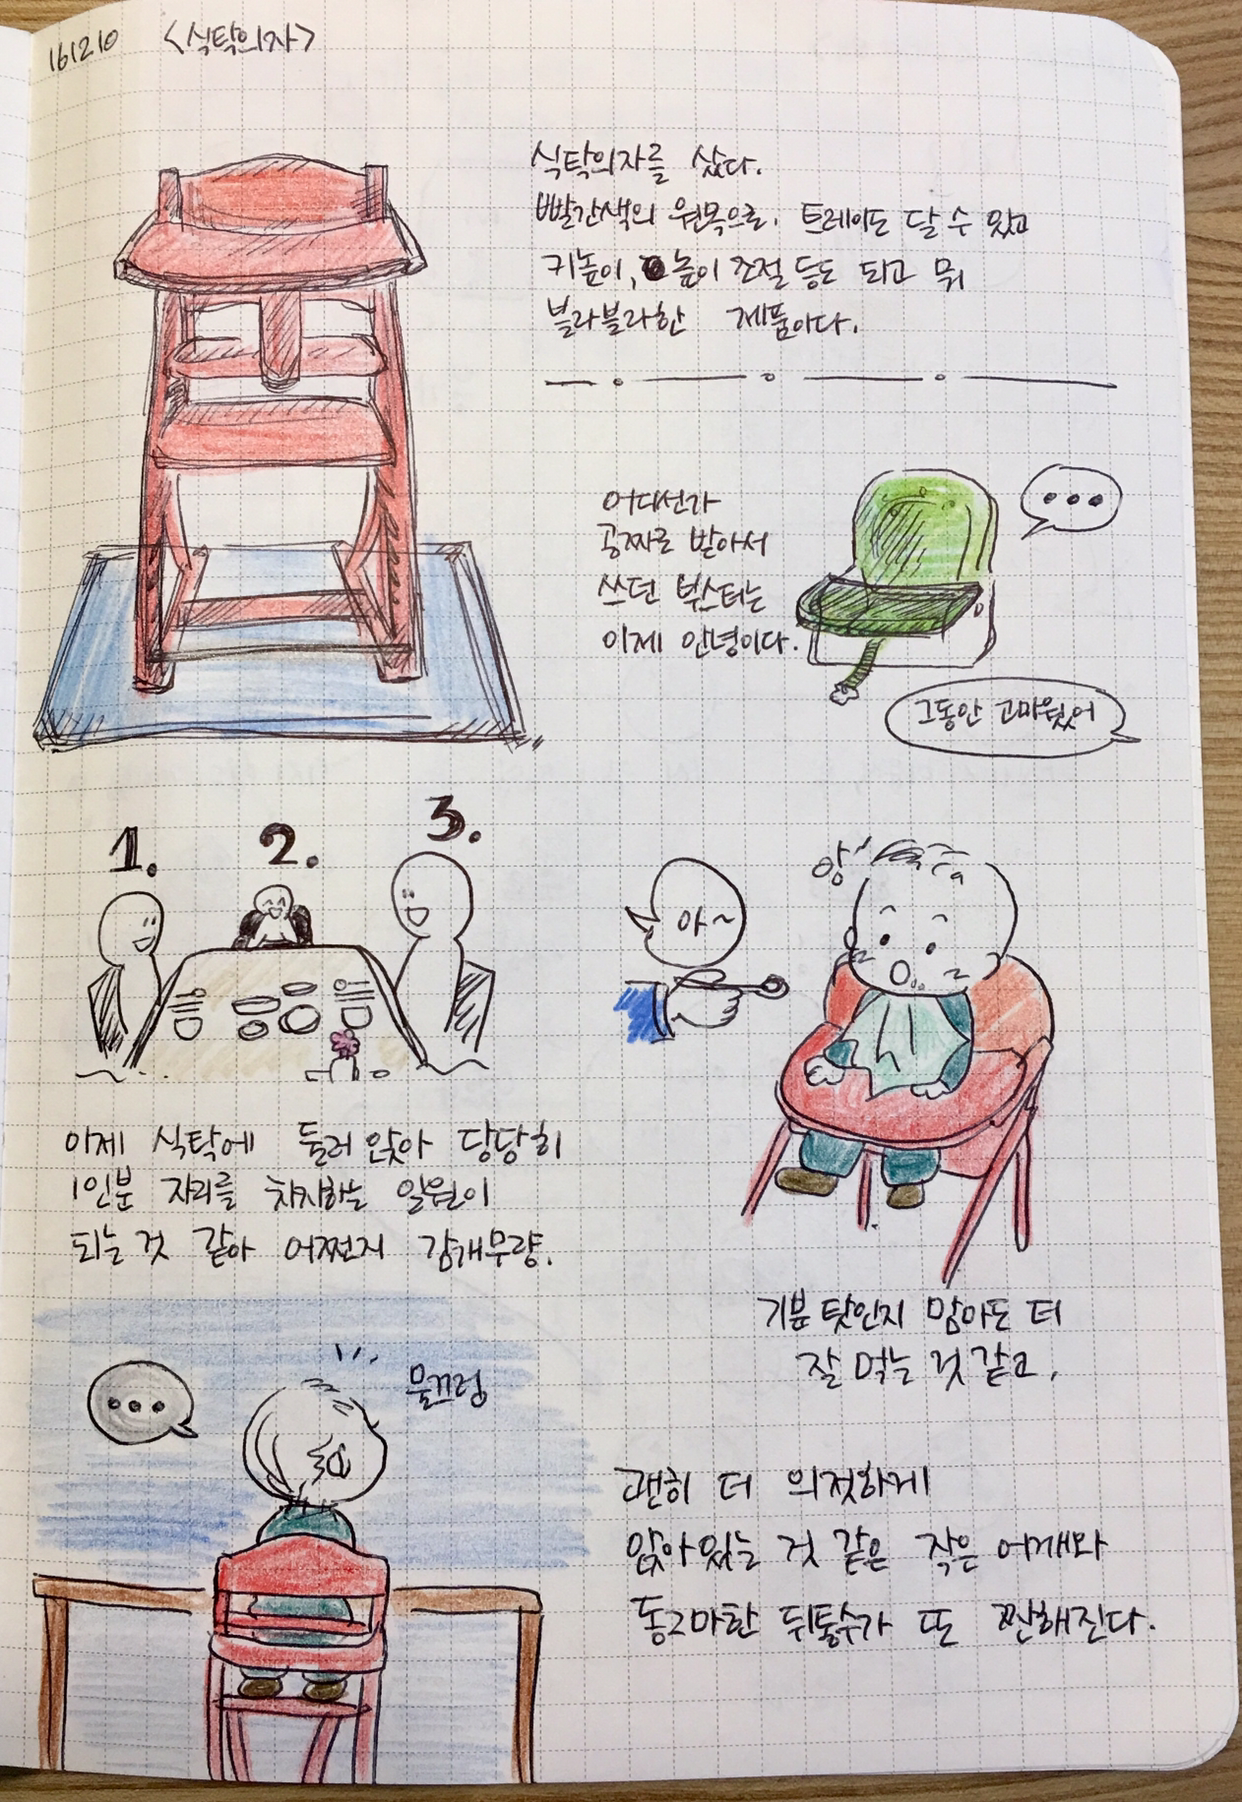 161210 <식탁의자>
식탁의자를 샀다.
빨간색의 원목으로. 트레이도 달 수 있고
키높이, 높이 조절 등도 되고 뭐
블라블라한 제품이다.
어디선가
공짜로 받아서
쓰던 부스터는
이제 안녕이다.
...
그동안 고마웠어
1. 2. 3.
이제 식탁에 둘러 앉아 당당히
1인분 자리를 차지하는 일원이
되는 것 같아 어쩐지 감개무량.
아~
앙
기분 탓인지 맘마도 더
잘 먹는 것 같고.
...
물끄럼
괜히 더 의젓하게
앉아있는 것 같은 작은 어깨와
동그마한 뒤통수가 또 짠해진다.